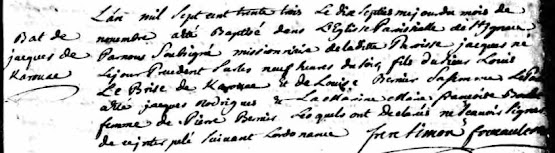 Bat de
jacques de
Karouac
L'an mil sept cent trente trois Le dix septiesme jour du mois de
novembre a eté Baptisé dans L'Eglise Paroissialle de St Ignace
Par nous Soubsigné missionnaire de laditte Paroisse jacques né
Le jour Precedent sur les neuf heures du soir fils du sieur Louis
Le Brise de Karouac & de Louise Bernier sa femme Le
a eté jacques Rodrigues & La Marine Marie
femme de Pierre Bernier Lesquels ont declaré ne scavoir signer
de ce interpelé suivant L'ordonance frere Simon foucault